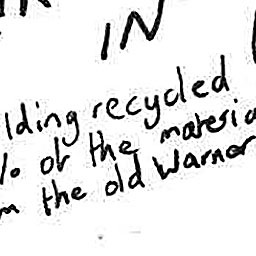 IN
lding recycled
% of the materia
m the old Warner